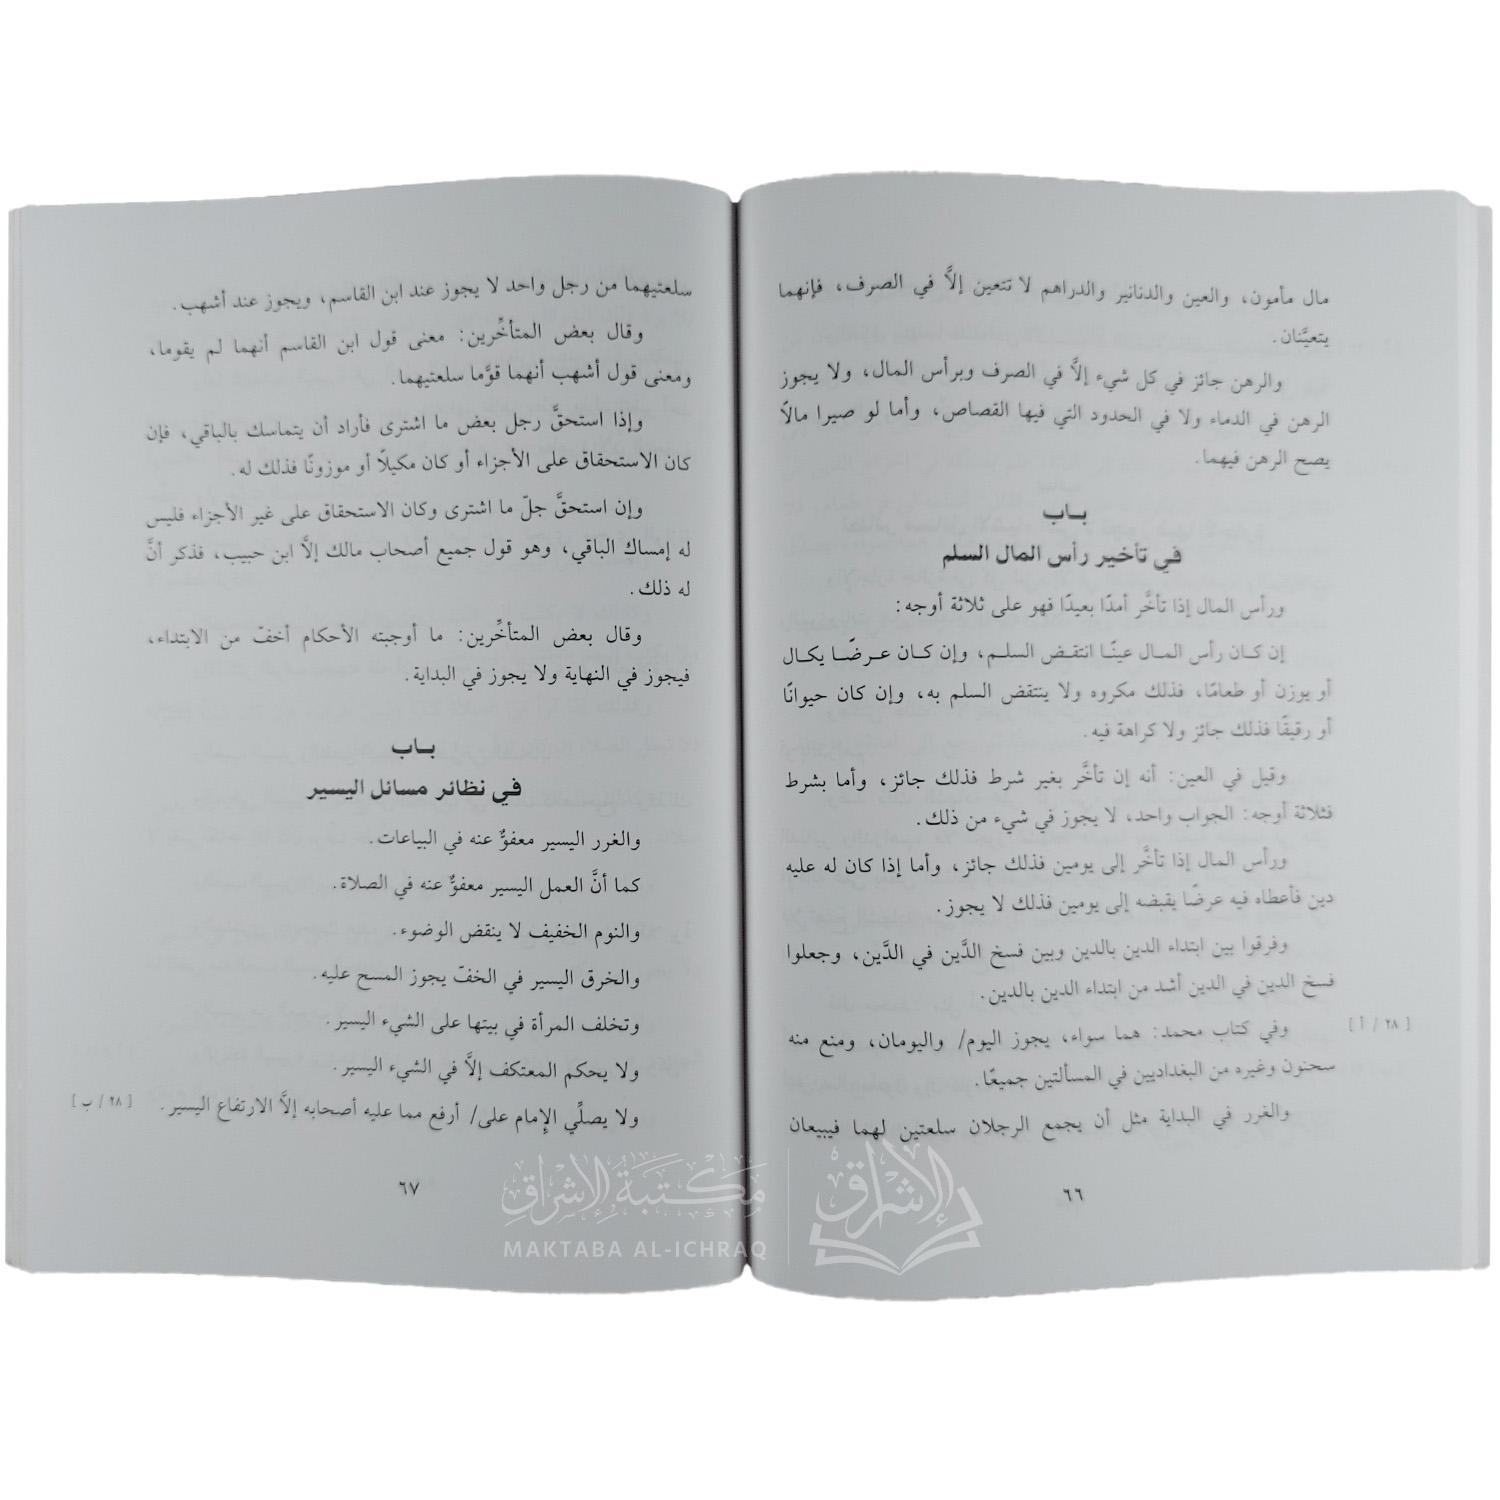 مال مأمون، والعين والدنانير والدراهم لا تتعين إلَّا في الصرف، فإنهما
يتعيَّنان.
والرهن جائز في كل شيء إلَّا في الصرف وبرأس المال، ولا يجوز
الرهن في الدماء ولا في الحدود التي فيها القصاص، وأما لو صيرا مالًا
يصح الرهن فيهما.
بــاب
في تأخير رأس المال السلم
ورأس المال إذا تأخَّر أمدًا بعيدًا فهو على ثلاثة أوجه:
إن كـان رأس المـال عينًـا انتقـض السلـم، وإن كـان عـرضًـا يكـال
أو يوزن أو طعامًا، فذلك مكروه ولا ينتقض السلم به، وإن كان حيوانًا
أو رقيقًا فذلك جائز ولا كراهة فيه.
وقيل في العين: أنه إن تأخَّر بغير شرط فذلك جائز، وأما بشرط
فثلاثة أوجه: الجواب واحد، لا يجوز في شيء من ذلك.
ورأس المال إذا تأخَّر إلى يومين فذلك جائز، وأما إذا كان له عليه
دين فأعطاه فيه عرضًا يقبضه إلى يومين فذلك لا يجوز.
وفرقوا بين ابتداء الدين بالدين وبين فسخ الدَّين في الدَّين، وجعلوا
فسخ الدين في الدين أشد من ابتداء الدين بالدين.
وفي كتاب محمد: هما سواء، يجوز اليوم/ واليومان، ومنع منه
[ ٢٨ / أ ]
سحنون وغيره من البغداديين في المسألتين جميعًا.
والغرر في البداية مثل أن يجمع الرجلان سلعتين لهما فيبيعان
٦٦
سلعتيهما من رجل واحد لا يجوز عند ابن القاسم، ويجوز عند أشهب.
وقال بعض المتأخِّرين: معنى قول ابن القاسم أنهما لم يقوما،
ومعنى قول أشهب أنهما قوَّما سلعتيهما.
وإذا استحقَّ رجل بعض ما اشترى فأراد أن يتماسك بالباقي، فإن
كان الاستحقاق على الأجزاء أو كان مكيلًا أو موزونًا فذلك له.
وإن استحقَّ جلّ ما اشترى وكان الاستحقاق على غير الأجزاء فليس
له إمساك الباقي، وهو قول جميع أصحاب مالك إلَّا ابن حبيب، فذكر أنَّ
له ذلك.
وقال بعض المتأخِّرين: ما أوجبته الأحكام أخفّ من الابتداء،
فيجوز في النهاية ولا يجوز في البداية.
بــاب
في نظائر مسائل اليسير
والغرر اليسير معفوٌّ عنه في البياعات.
كما أنَّ العمل اليسير معفوٌّ عنه في الصلاة.
والنوم الخفيف لا ينقض الوضوء.
والخرق اليسير في الخفّ يجوز المسح عليه.
وتخلف المرأة في بيتها على الشيء اليسير.
ولا يحكم المعتكف إلَّا في الشيء اليسير.
ولا يصلِّي الإمام على/ أرفع مما عليه أصحابه إلَّا الارتفاع اليسير.
[ ٢٨ / ب ]
٦٧
مكتبة الإشراق
MAKTABA AL-ICHRAQ
الإشراق